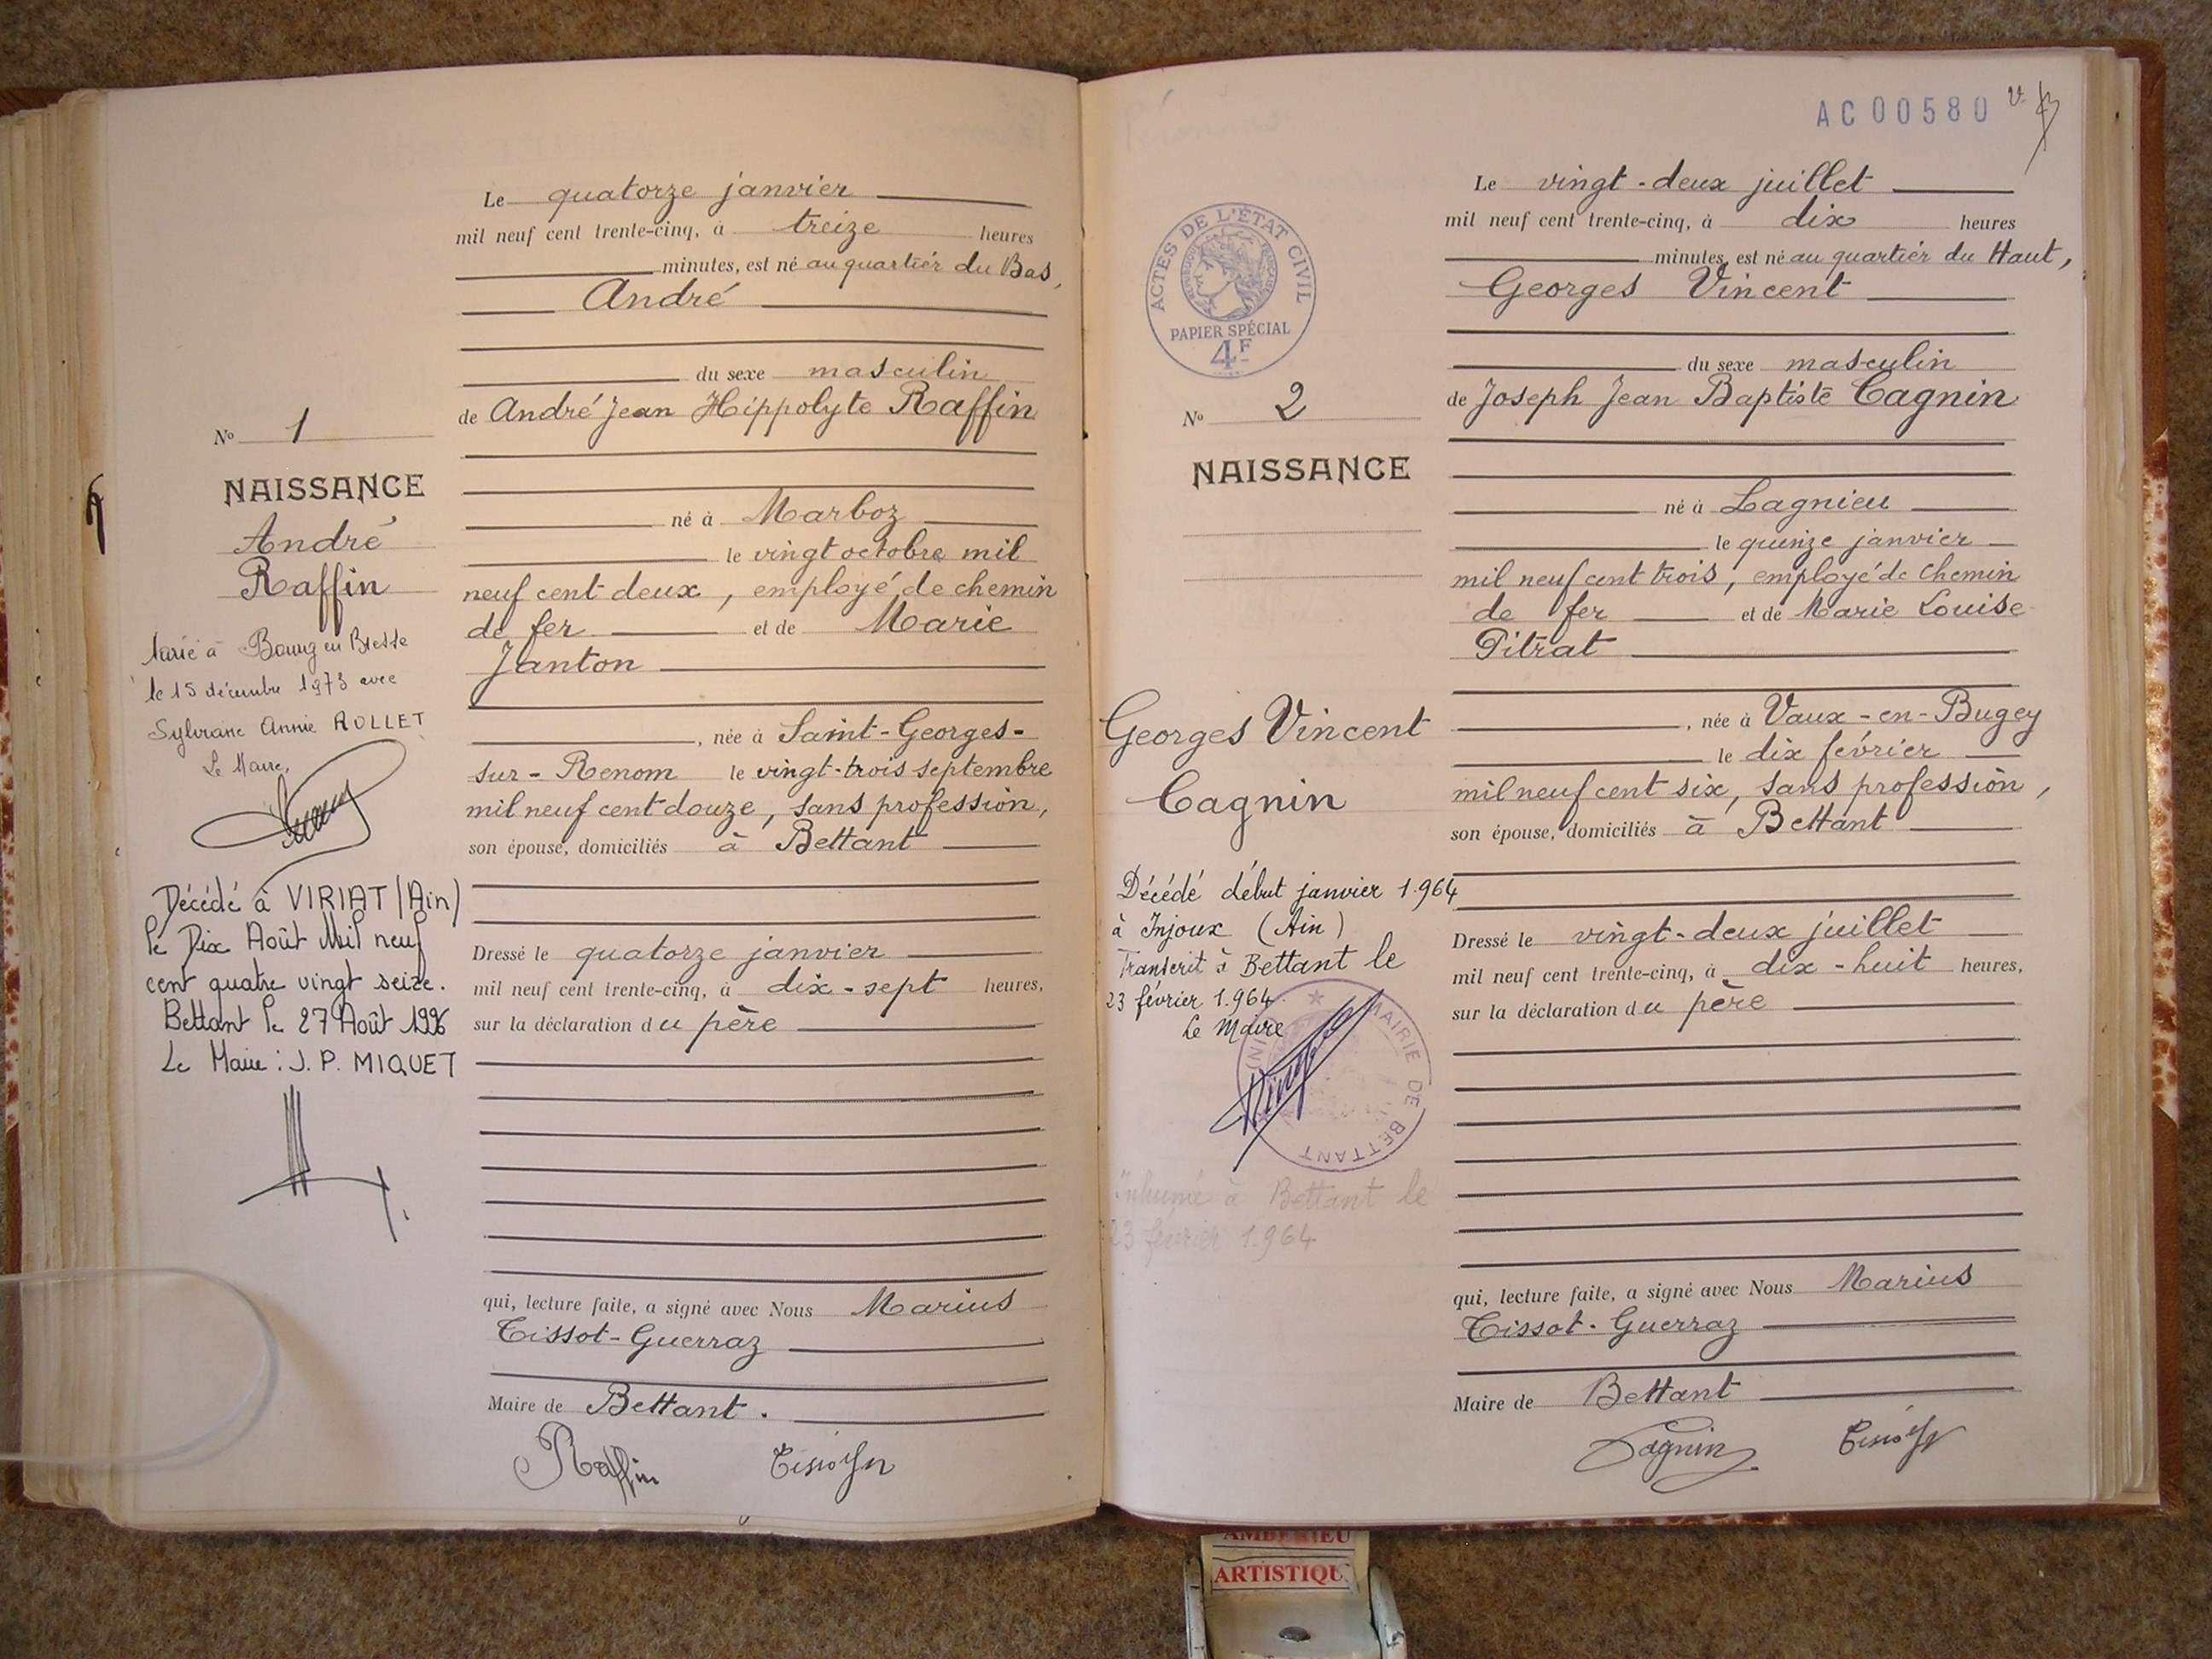 Le quatorze janvier
mil neuf cent trente-cinq, à treize heures
minutes, est né au quartier du Bas,
André
du sexe masculin
de André Jean Hippolyte Raffin
né à Marboz
le vingt octobre mil
neuf cent deux, employé de chemin
de fer et de Marie
Janton
, née à Saint-Georges-
sur-Renom le vingt-trois septembre
mil neuf cent douze, sans profession,
son épouse, domiciliés à Bettant
Dressé le quatorze janvier
mil neuf cent trente-cinq, à dix-sept heures,
sur la déclaration du père
qui, lecture faite, a signé avec Nous Marius
Tissot-Guerraz
Maire de Bettant.
Raffin
No 1
NAISSANCE
André
Raffin
Marié à Bourg en Bresse
le 15 décembre 1973 avec
Sylviane Annie ROLLET
Le Maire,
Décédé à VIRIAT (Ain)
le Dix Août Mil neuf
cent quatre vingt seize.
Bettant le 27 Août 1996
Le Maire : J. P. MIQUET
AC00580
ACTES DE L'ÉTAT CIVIL
PAPIER SPÉCIAL
4F
Le vingt-deux juillet
mil neuf cent trente-cinq, à dix heures
minutes, est né au quartier du Haut,
Georges Vincent
du sexe masculin
de Joseph Jean Baptiste Cagnin
né à Lagnieu
le quinze janvier
mil neuf cent trois, employé de chemin
de fer et de Marie Louise
Pitrat
, née à Vaux-en-Bugey
le dix février
mil neuf cent six, sans profession,
son épouse, domiciliés à Bettant
Dressé le vingt-deux juillet
mil neuf cent trente-cinq, à dix-huit heures,
sur la déclaration du père
qui, lecture faite, a signé avec Nous Marius
Tissot-Guerraz
Maire de Bettant
Cagnin
No 2
NAISSANCE
Georges Vincent
Cagnin
Décédé début janvier 1.964
à Injoux (Ain)
Transcrit à Bettant le
23 février 1.964.
Le Maire
MAIRIE DE BETTANT
Inhumé à Bettant le
23 février 1.964
AMBERIEU
ARTISTIQU